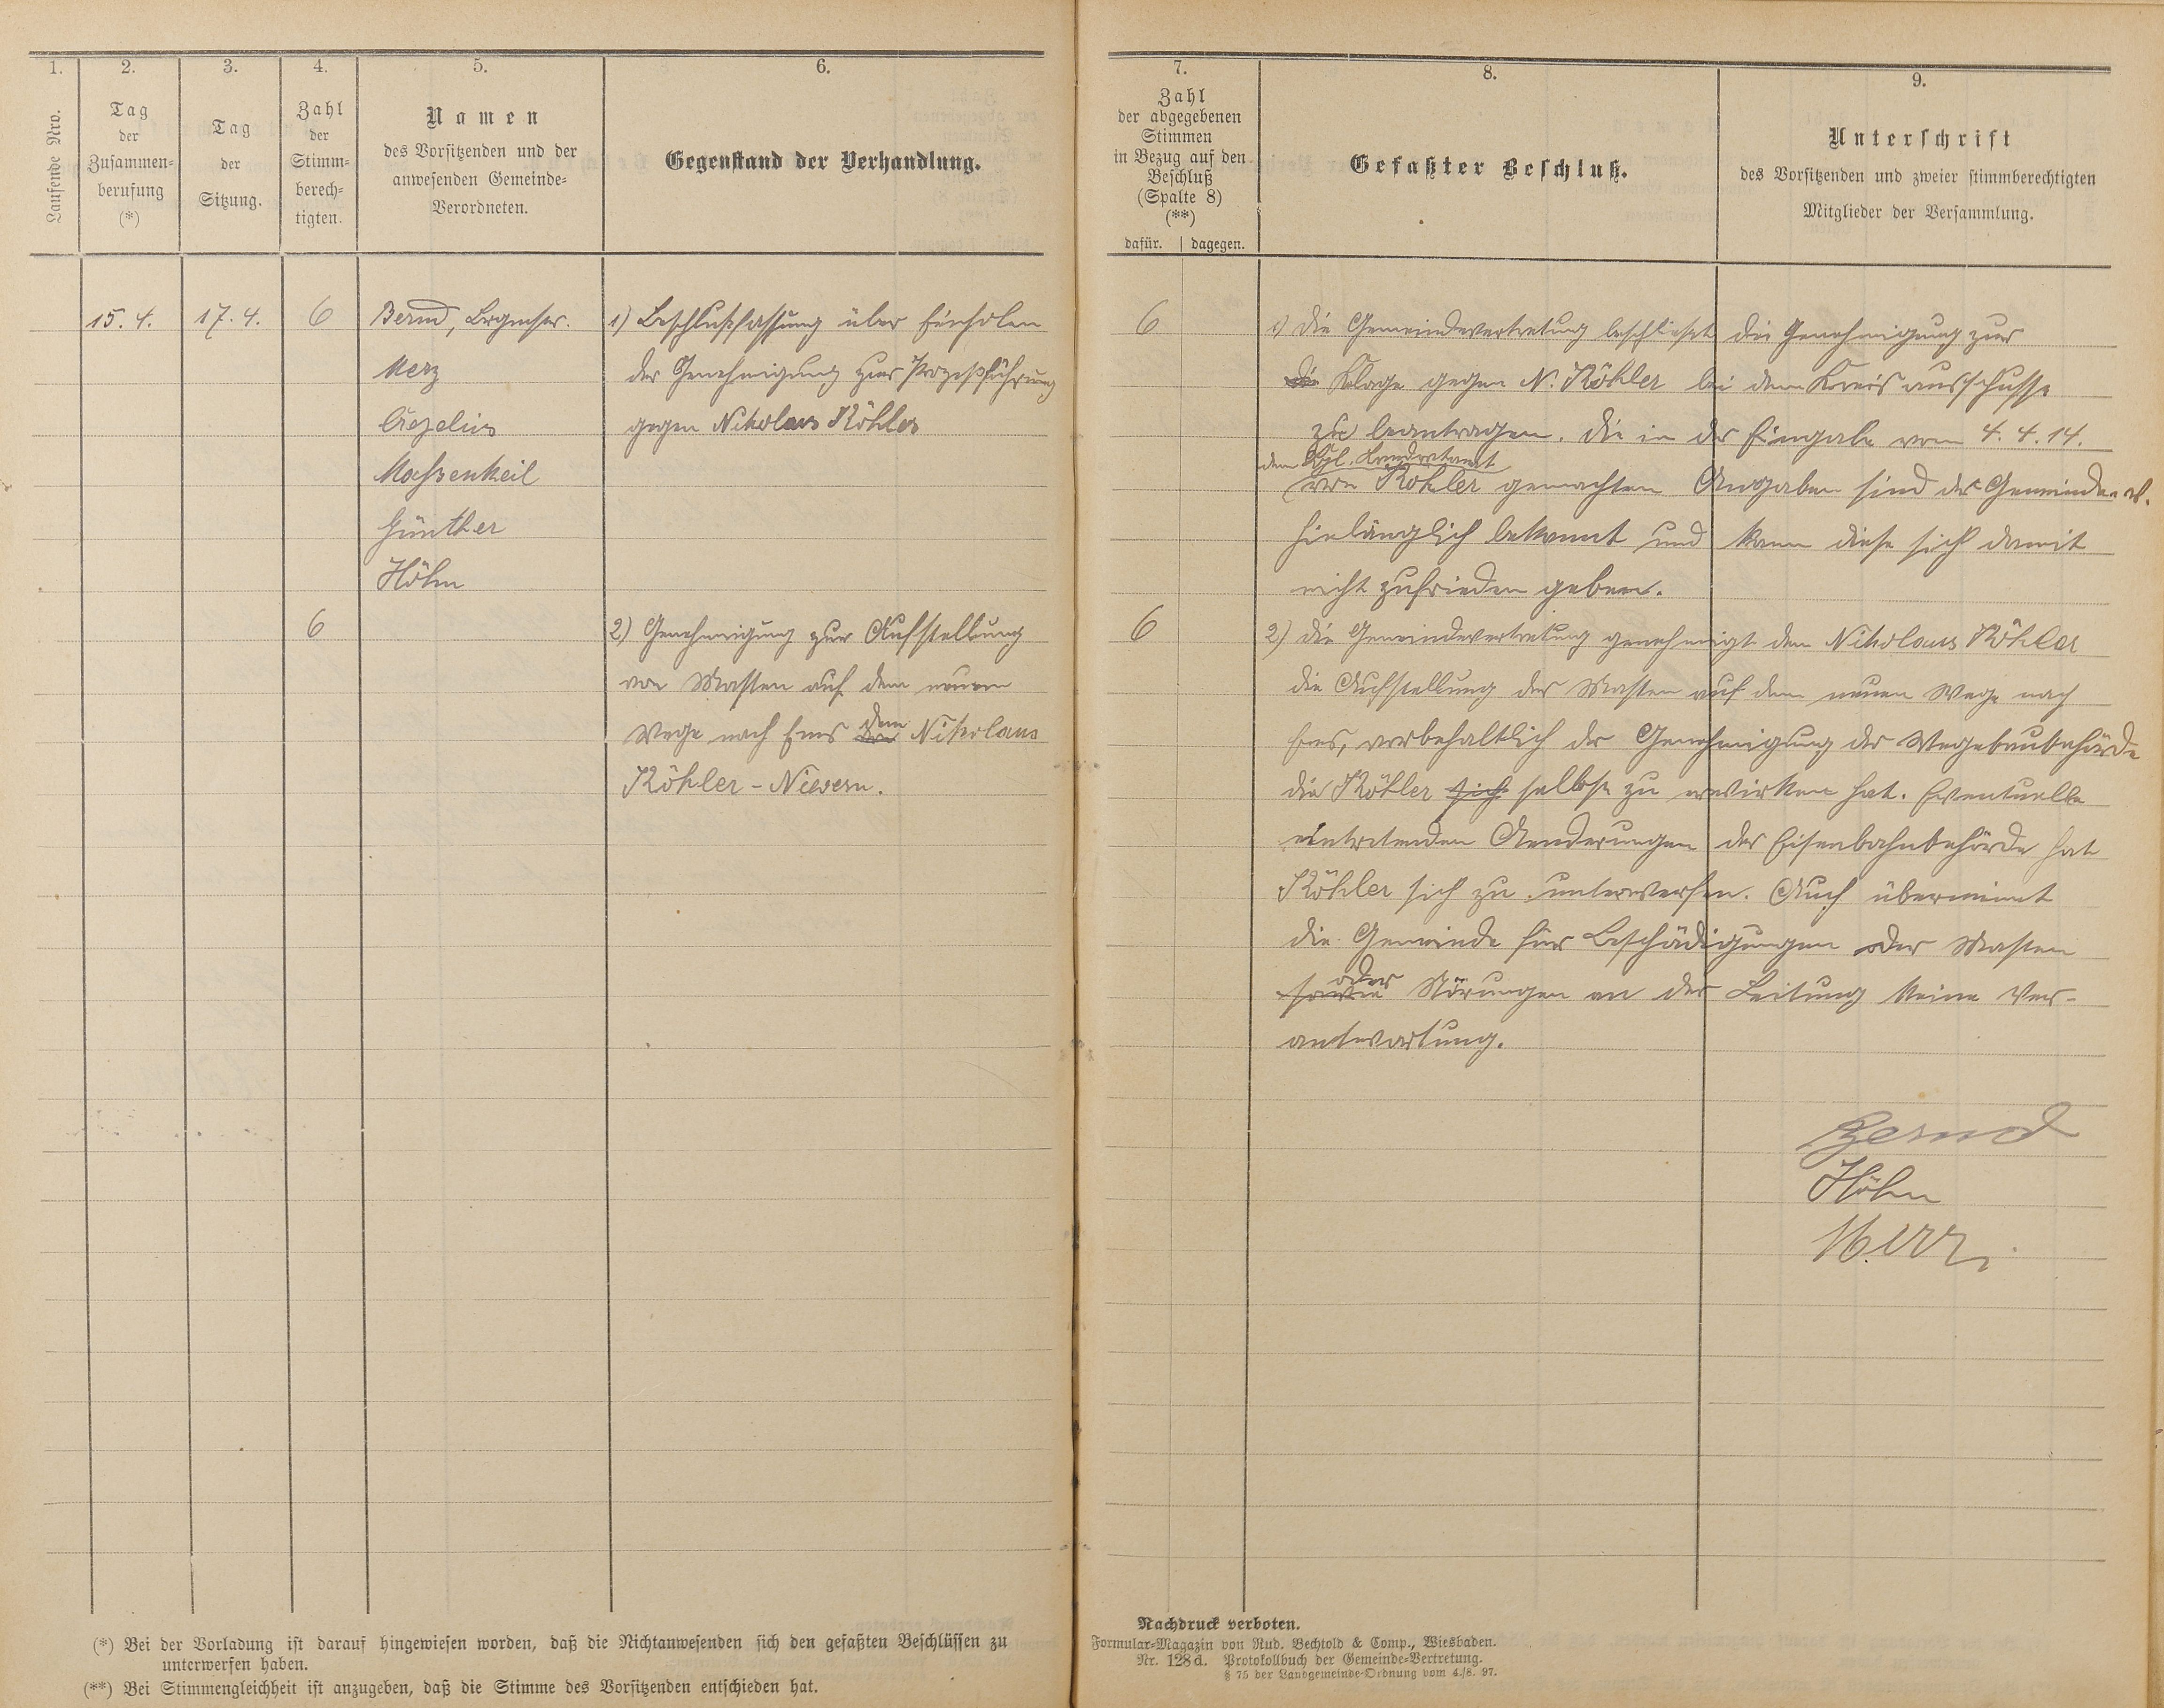 1.
2.
3.
4.
5.
6.
Laufende Nro.
Tag
der
Zusammen-
berufung
(*)
Tag
der
Sitzung.
Zahl
der
Stimm-
berech-
tigten.
Namen
des Vorsitzenden und der
anwesenden Gemeinde-
Verordneten.
Gegenstand der Verhandlung.
15. 4.
17. 4.
6
Bernd, Brgmstr.
Merz
Gezelius
Maßenkeil
Günther
Höhn
1) Beschlußfassung über Einholen
der Genehmigung zur Prozeßführung
gegen Nikolaus Köhler
6
2) Genehmigung zur Aufstellung
von Masten auf dem neuen
Wege nach Ems dem Nikolaus
Köhler-Nievern.
(*) Bei der Vorladung ist darauf hingewiesen worden, daß die Nichtanwesenden sich den gefaßten Beschlüssen zu
unterwerfen haben.
(**) Bei Stimmengleichheit ist anzugeben, daß die Stimme des Vorsitzenden entschieden hat.
7.
8.
9.
Zahl
der abgegebenen
Stimmen
in Bezug auf den
Beschluß
(Spalte 8)
(**)
dafür. | dagegen.
Gefaßter Beschluß.
Unterschrift
des Vorsitzenden und zweier stimmberechtigten
Mitglieder der Versammlung.
6
1) Die Gemeindevertretung beschließt die Genehmigung zur
die Klage gegen N. Köhler bei dem Kreisausschusse
zu beantragen. Die in der Eingabe vom 4. 4. 14.
dem Kgl. Landratamt
von Köhler gemachten Angaben sind der Geminde
hinlänglich bekannt und kann diese sich damit
nicht zufrieden geben.
6
2) Die Gemeindevertretung genehmigt dem Nikolaus Köhler
die Aufstellung der Masten auf dem neuen Wege nach
Ems, vorbehaltlich der Genehmigung der Wegebaubehörde
die Köhler sich selbst zu erwirken hat. Eventuelle
eintretenden Aenderungen der Eisenbahnbehörde hat
Köhler sich zu unterwerfen. Auch übernimt
die Gemeinde für Beschädigungen der Masten
sowie oder Störungen an der Leitung keine Ver-
antwortung.
Bernd
Höhn
Merz
Nachdruck verboten.
Formular-Magazin von Rud. Bechtold & Comp., Wiesbaden.
Nr. 128d. Protokollbuch der Gemeinde-Vertretung.
§ 75 der Landgemeinde-Ordnung vom 4./8. 97.